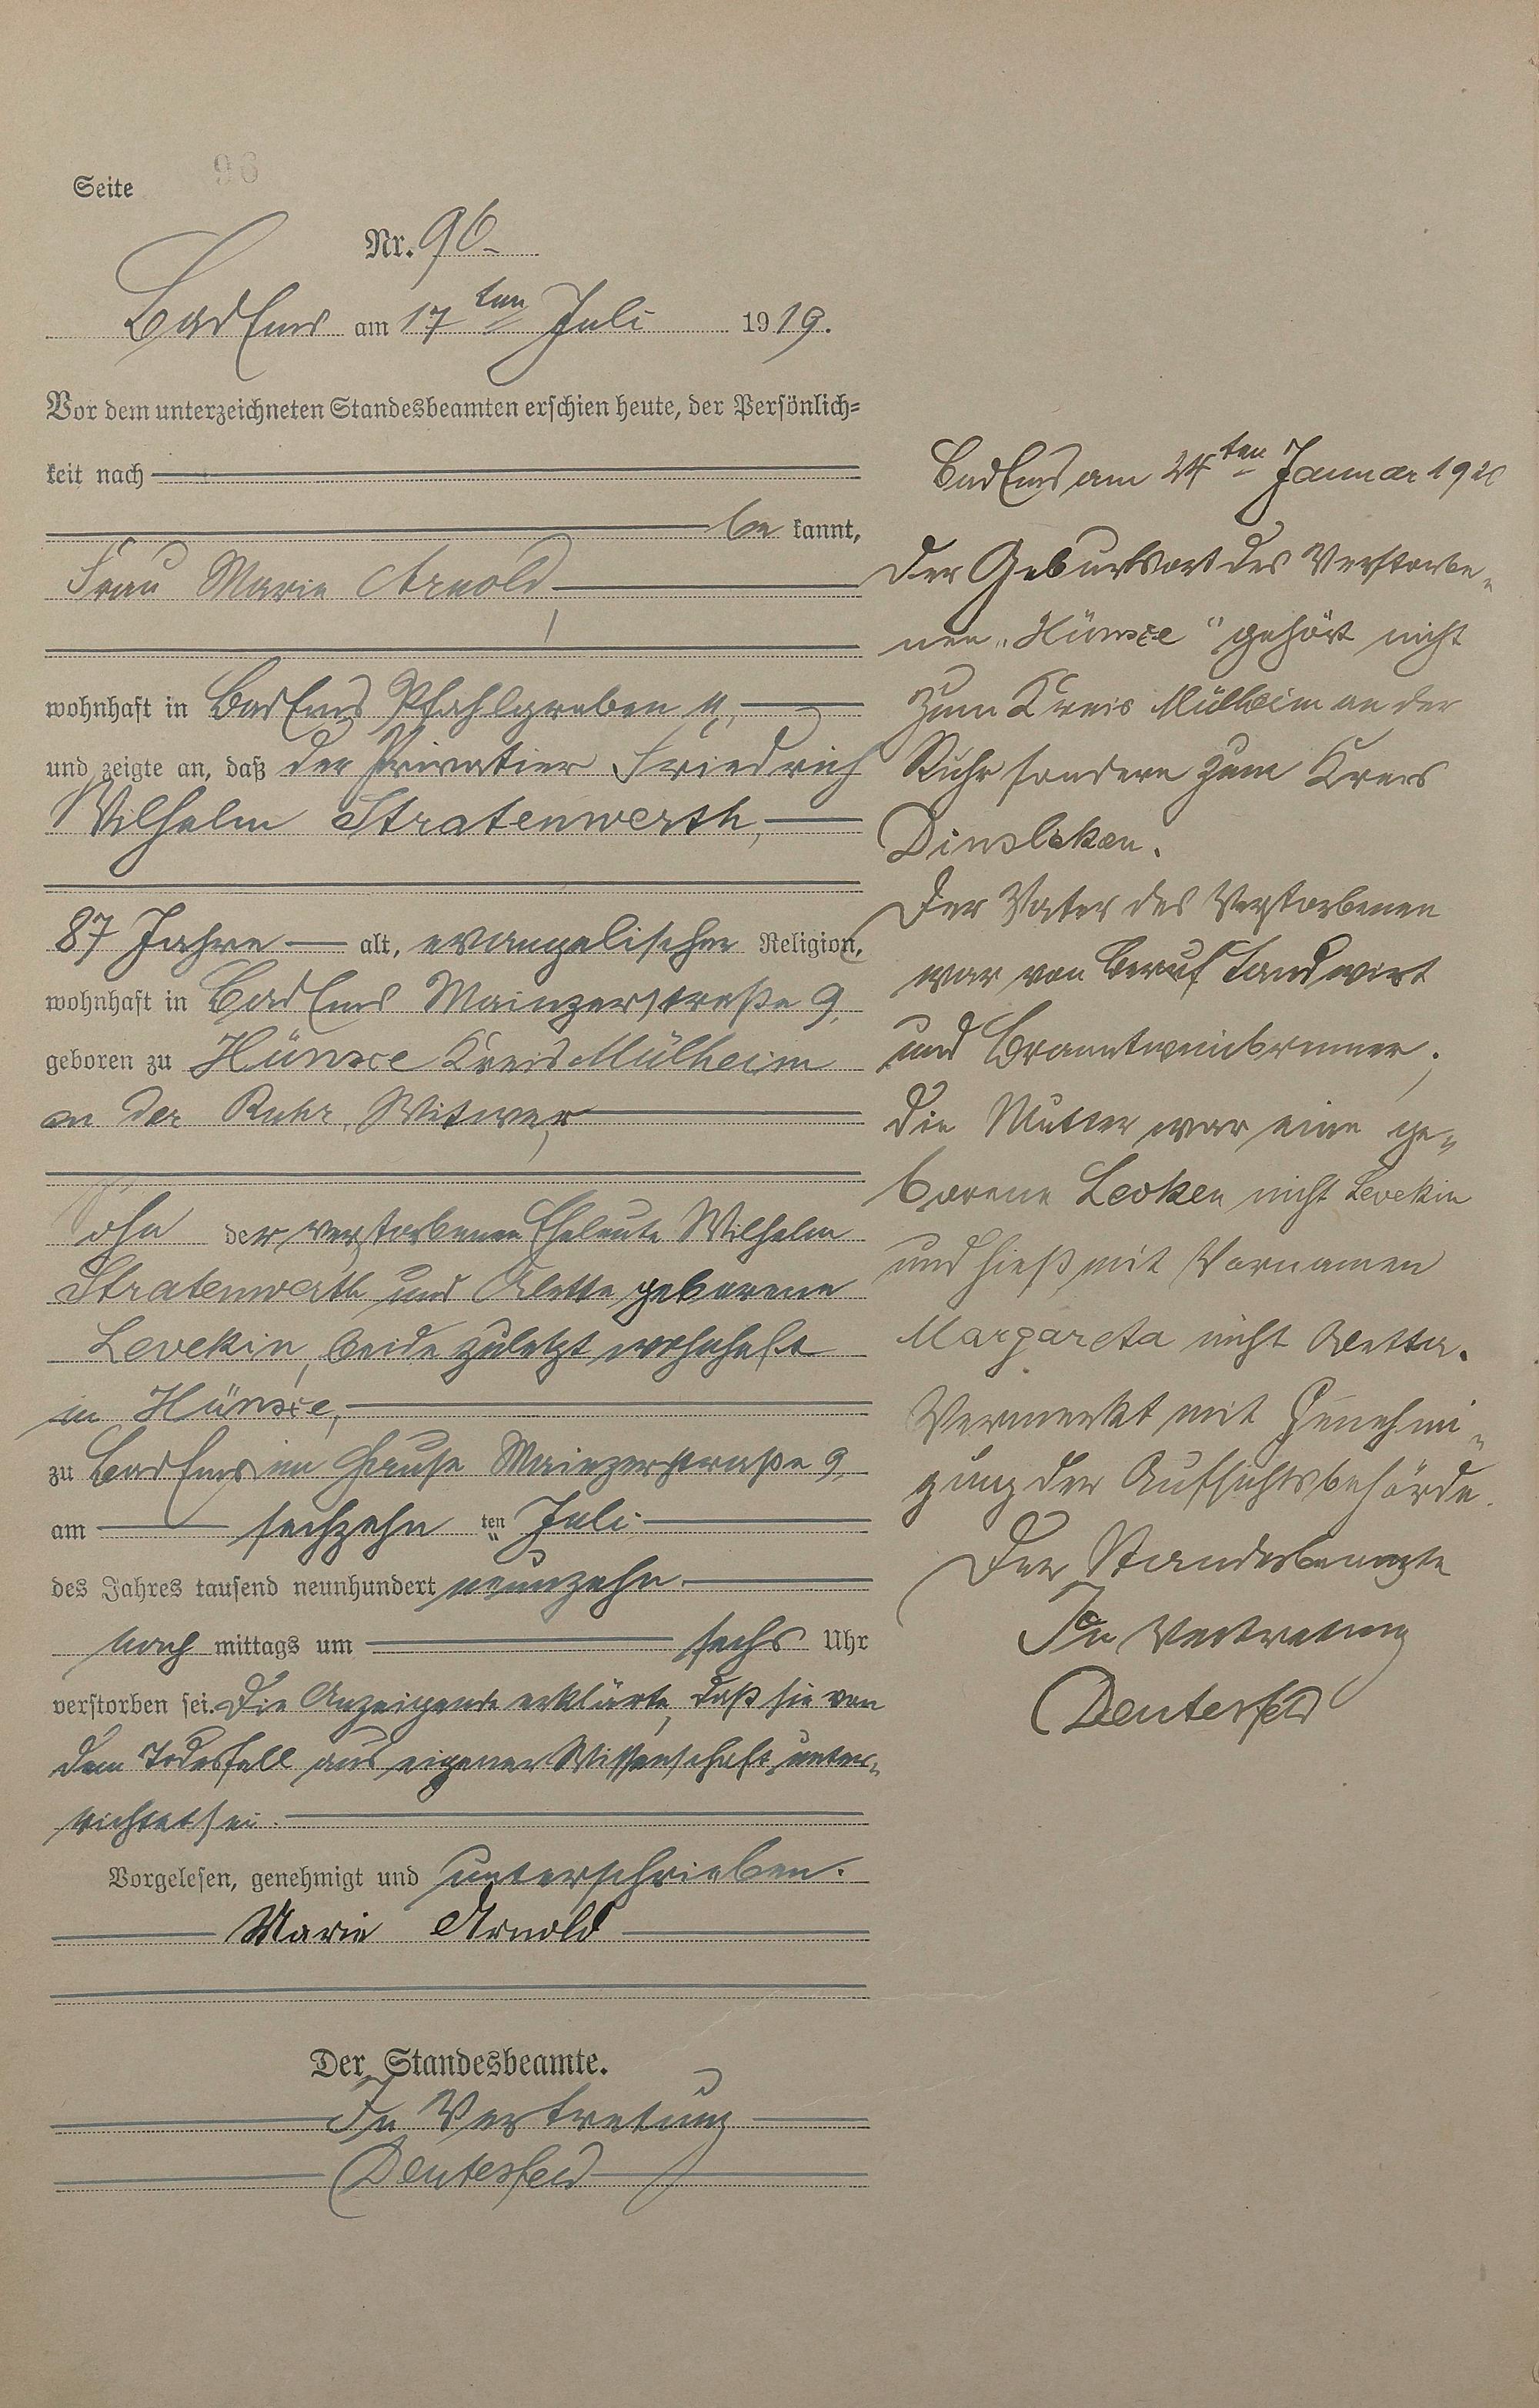 Seite 96
Nr. 96
Bad Ems am 17ten Juli 1919.
Vor dem unterzeichneten Standesbeamten erschien heute, der Persönlich-
keit nach
be kannt,
Frau Marie Arnold,
wohnhaft in Bad Ems Pfahlgraben
und zeigte an, daß der Privatier Friedrich
Wilhelm Stratenwerth,
87 Jahre alt, evangelischer Religion,
wohnhaft in Bad Ems Mainzerstraße 9,
geboren zu Hünxe Kreis Mülheim
an der Ruhr, Witwer,
Sohn der verstorbenen Eheleute Wilhelm
Stratenwerth und Aletta geborene
Levekin, beide zuletzt wohnhaft
in Hünxe,
zu Bad Ems im Hause Mainzerstraße 9,
am sechzehn ten Juli
des Jahres tausend neunhundert neunzehn
nach mittags um sechs Uhr
verstorben sei. Die Anzeigende erklärte, daß sie von
dem Todesfall aus eigener Wissenschaft unter-
richtet sei.
Vorgelesen, genehmigt und unterschrieben.
Marie Arnold
Der Standesbeamte.
In Vertretung
Deutesfeld
Bad Ems am 24ten Januar 1920
Der Geburtsort des Verstorbe-
nen "Hünxe" gehört nicht
zum Kreis Mülheim an der
Ruhr sondern zum Kreis
Dinslaken.
Der Vater des Verstorbenen
war von Beruf Landwirt
und Branntweinbrenner;
die Mutter war eine ge-
borene Lecken nicht Levekin
und hieß mit Vornamen
Margareta nicht Aletta.
Vermerkt mit Genehmi-
gung der Aufsichtsbehörde.
Der Standesbeamte
In Vertretung
Deutesfeld